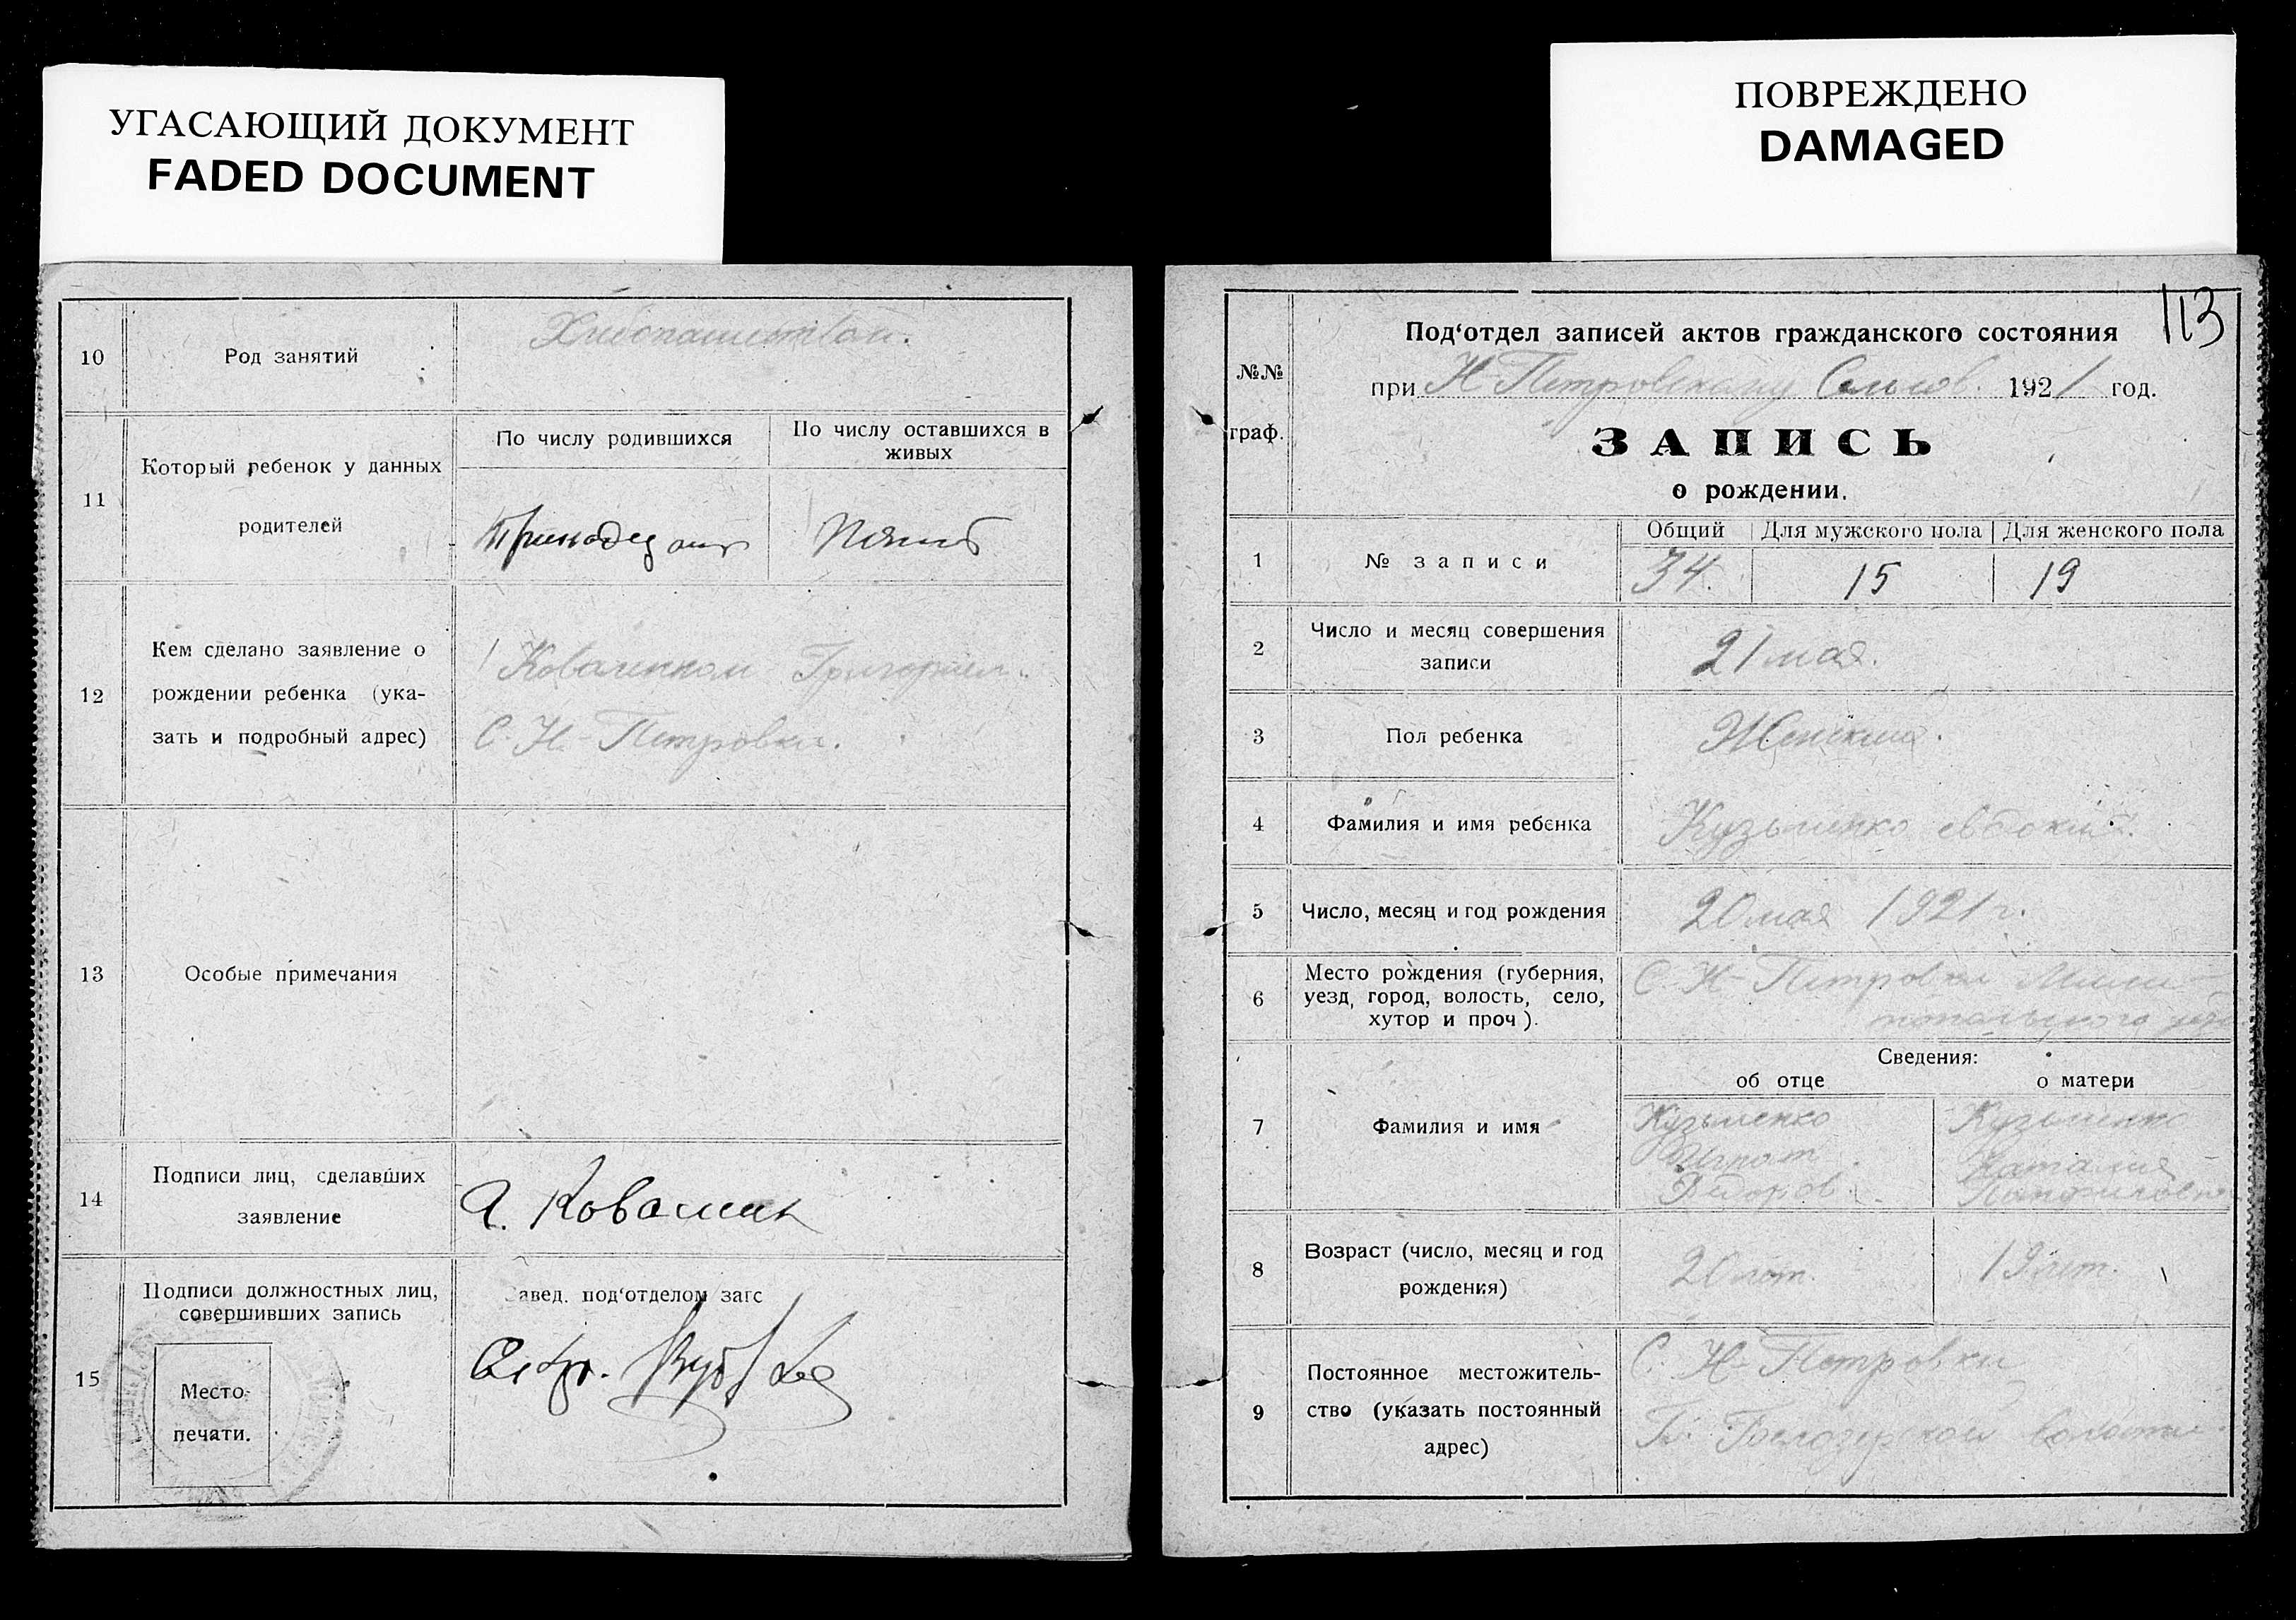 УГАСАЮЩИЙ ДОКУМЕНТ
FADED DOCUMENT
ПОВРЕЖДЕНО
DAMAGED
10
Род занятий
11
Который ребенок у данных
родителей
По числу родившихся
По числу оставшихся в
живых
Пятый
12
Кем сделано заявление о
рождении ребенка (ука-
зать и подробный адрес)
Коваликом Григорием.
С. Н-Петровки.
13
Особые примечания
14
Подписи лиц, сделавших
заявление
15
Подписи должностных лиц,
совершивших запись
Место
печати.
Завед. под‘отделом загс
113
№№
граф.
Под‘отдел записей актов гражданского состояния
при Н-Петровскому 1921 год.
ЗАПИСЬ
о рождении.
1
№ записи
Общий Для мужского пола Для женского пола
34. 15 19
2
Число и месяц совершения
записи
21 мая.
3
Пол ребенка
Женский.
4
Фамилия и имя ребенка
Кузьменко Евдокия.
5
Число, месяц и год рождения
20 мая 1921 г.
6
Место рождения (губерния,
уезд, город, волость, село,
хутор и проч).
С. Н-Петровка Мели-
топольского
Сведения:
об отце о матери
7
Фамилия и имя
Кузьменко
Игнат
Федоров.
Кузьменко
Наталия
8
Возраст (число, месяц и год
рождения)
20 лет. 19 лет.
9
Постоянное местожитель-
ство (указать постоянный
адрес)
С. Н-Петровки
Белозерской волости